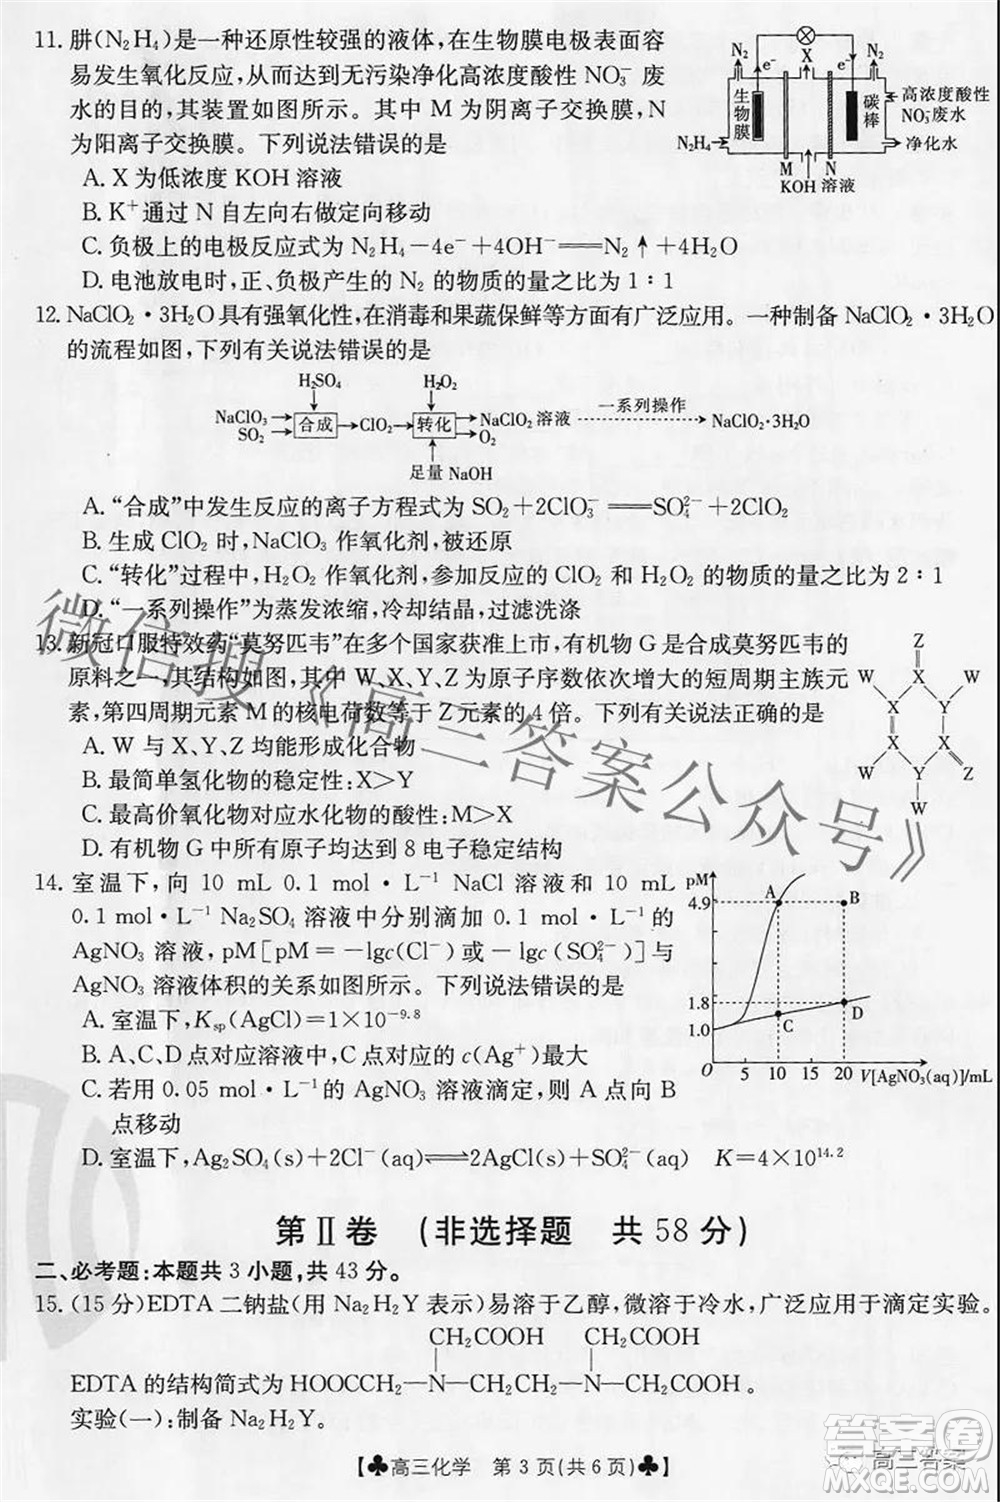 11. 肼(N₂H₄)是一种还原性较强的液体,在生物膜电极表面容
易发生氧化反应,从而达到无污染净化高浓度酸性NO₃⁻废
水的目的,其装置如图所示。其中M为阴离子交换膜,N
为阳离子交换膜。下列说法错误的是
N₂ e⁻ X e⁻ N₂
生物膜 碳棒
高浓度酸性
NO₃⁻废水
N₂H₄ 净化水
M N
KOH溶液
A. X为低浓度KOH溶液
B. K⁺通过N自左向右做定向移动
C. 负极上的电极反应式为N₂H₄-4e⁻+4OH⁻══N₂↑+4H₂O
D. 电池放电时,正、负极产生的N₂的物质的量之比为1∶1
12. NaClO₂·3H₂O具有强氧化性,在消毒和果蔬保鲜等方面有广泛应用。一种制备NaClO₂·3H₂O
的流程如图,下列有关说法错误的是
H₂SO₄ H₂O₂
NaClO₃ SO₂ 合成 ClO₂ 转化 NaClO₂溶液 O₂ 一系列操作 NaClO₂·3H₂O
足量NaOH
A. “合成”中发生反应的离子方程式为SO₂+2ClO₃⁻══SO₄²⁻+2ClO₂
B. 生成ClO₂时,NaClO₃作氧化剂,被还原
C. “转化”过程中,H₂O₂作氧化剂,参加反应的ClO₂和H₂O₂的物质的量之比为2∶1
D. “一系列操作”为蒸发浓缩,冷却结晶,过滤洗涤
13. 新冠口服特效药“莫努匹韦”在多个国家获准上市,有机物G是合成莫努匹韦的
原料之一,其结构如图。其中W、X、Y、Z为原子序数依次增大的短周期主族元
素,第四周期元素M的核电荷数等于Z元素的4倍。下列有关说法正确的是
Z
W X W
X Y
Y X
W Y Z
W
A. W与X、Y、Z均能形成化合物
B. 最简单氢化物的稳定性:X>Y
C. 最高价氧化物对应水化物的酸性:M>X
D. 有机物G中所有原子均达到8电子稳定结构
14. 室温下,向10 mL 0.1 mol·L⁻¹ NaCl溶液和10 mL
0.1 mol·L⁻¹ Na₂SO₄溶液中分别滴加0.1 mol·L⁻¹的
AgNO₃溶液,pM[pM=-lgc(Cl⁻)或-lgc(SO₄²⁻)]与
AgNO₃溶液体积的关系如图所示。下列说法错误的是
pM
4.9 A B
1.8 D
1.0 C
O 5 10 15 20 V[AgNO₃(aq)]/mL
A. 室温下,Ksp(AgCl)=1×10⁻⁹·⁸
B. A、B、C、D点对应溶液中,C点对应的c(Ag⁺)最大
C. 若用0.05 mol·L⁻¹的AgNO₃溶液滴定,则A点向B
点移动
D. 室温下,Ag₂SO₄(s)+2Cl⁻(aq)⇌2AgCl(s)+SO₄²⁻(aq) K=4×10¹⁴·²
第Ⅱ卷 (非选择题 共58分)
二、必考题:本题共3小题,共43分。
15. (15分)EDTA二钠盐(用Na₂H₂Y表示)易溶于乙醇,微溶于冷水,广泛应用于滴定实验。
CH₂COOH CH₂COOH
EDTA的结构简式为HOOCCH₂—N—CH₂CH₂—N—CH₂COOH。
实验(一):制备Na₂H₂Y。
【♣高三化学 第3页(共6页)♣】
微信搜《高三答案公众号》
答案圈
高三答案